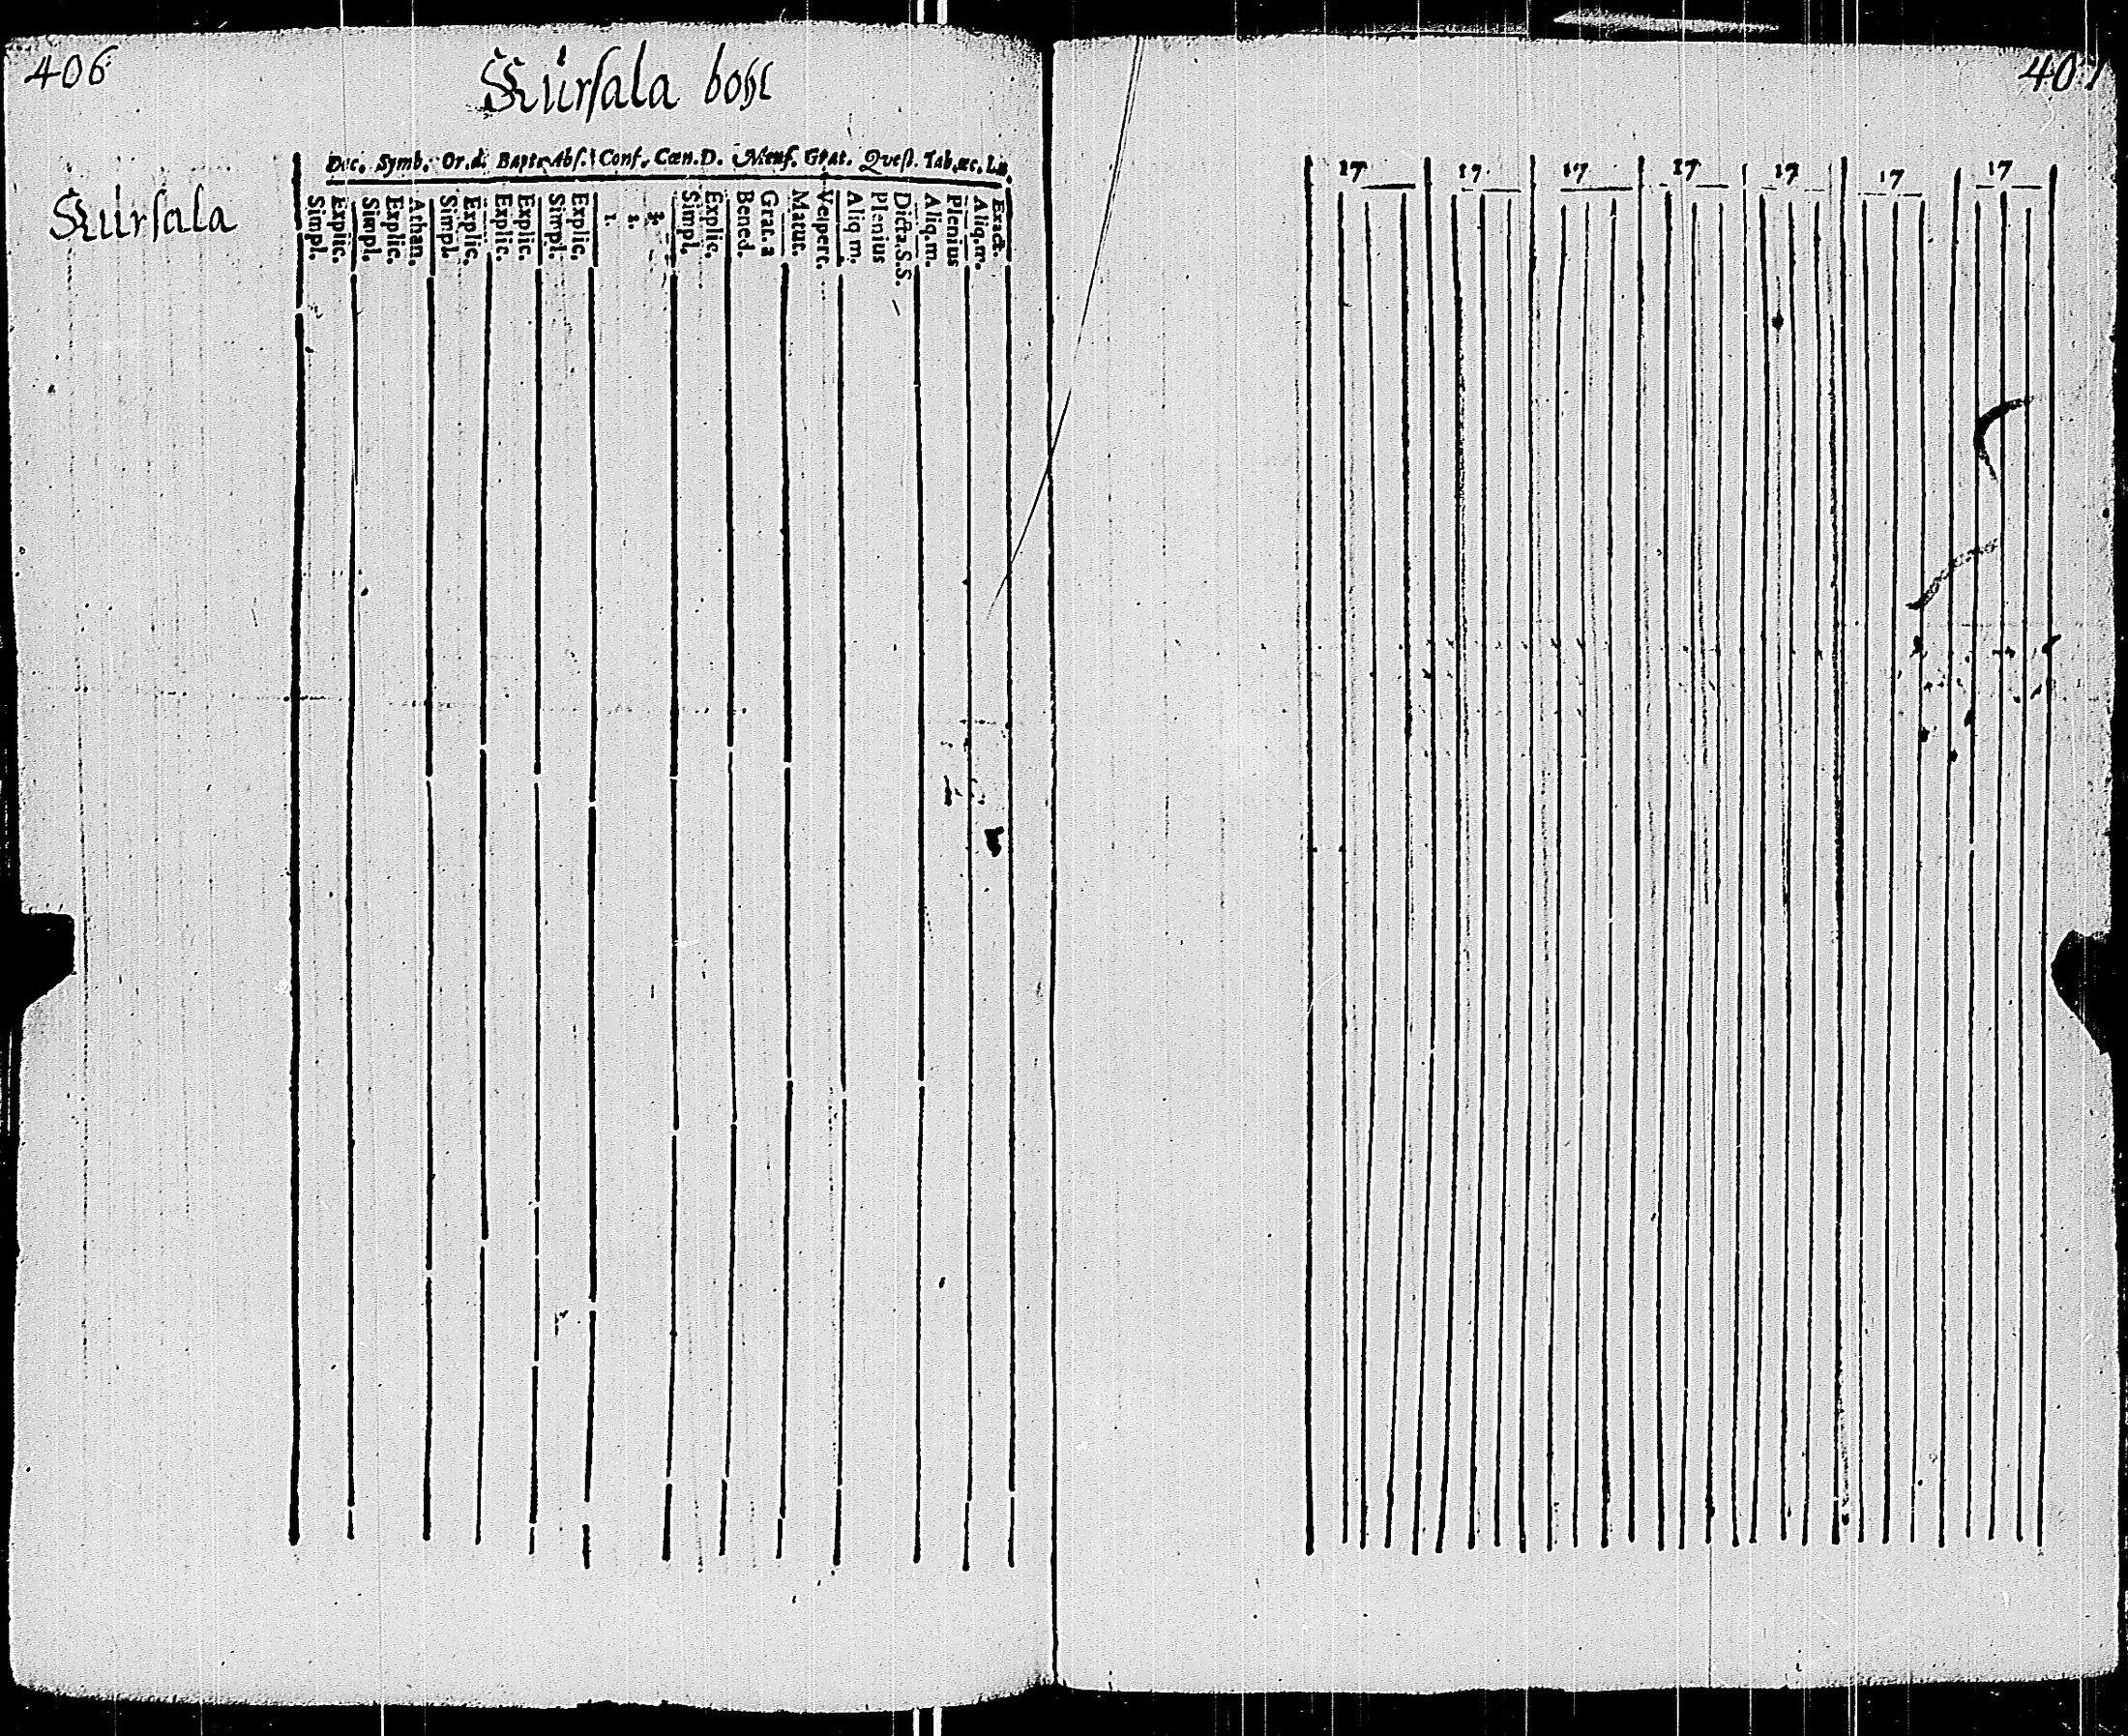 406
Kürsala bohl
Dec. Symb. Or.d. Bapt. Abs. Conf. Cœn.D. Mens. Grat. Quest. Tab.œc. Lu.
Kürsala
Simpl.
Explic.
Simpl.
Explic.
Athan.
Simpl.
Explic.
Explic.
Explic.
Simpl.
Explic.
1.
2.
3.
Simpl.
Explic.
Bened.
Grat. a
Matut.
Vespert.
Aliq m.
Plenius
Dicta.S.S.
Aliq.m.
Plenius
Aliq.m.
Exact.
407
17 17 17 17 17 17 17